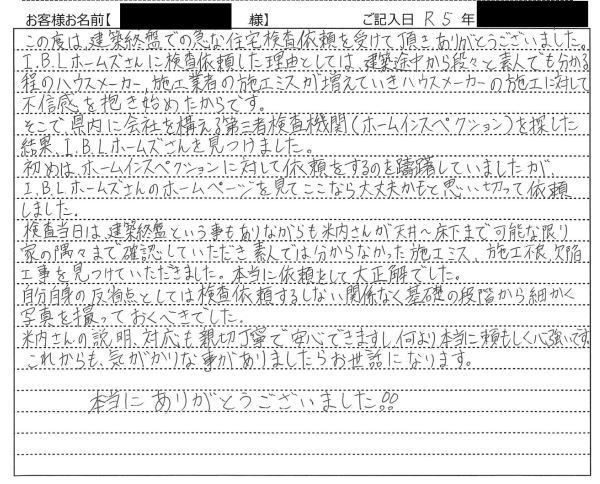 お客様お名前【 様】 ご記入日 R5年
この度は、建築終盤での急な住宅検査依頼を受けて頂きありがとうございました。
I.B.Lホームズさんに検査依頼した理由としては、建築途中から段々と素人でも分かる
程のハウスメーカー、施工業者の施工ミスが増えていきハウスメーカーの施工に対して
不信感を抱き始めたからです。
そこで、県内に会社を構える第三者検査機関(ホームインスペクション)を探した
結果、I.B.Lホームズさんを見つけました。
初めは、ホームインスペクションに対して依頼をするのを躊躇していましたが
I.B.Lホームズさんのホームページを見てここなら大丈夫かもと思い切って依頼
しました。
検査当日は、建築終盤という事もありながらも米内さんが天井～床下まで可能な限り
家の隅々まで確認していただき素人では分からなかった施工ミス、施工不良、欠陥
工事を見つけていただきました。本当に依頼をして大正解でした。
自分自身の反省点としては検査依頼するしない関係なく基礎の段階から細かく
写真を撮っておくべきでした。
米内さんの説明、対応も親切丁寧で安心できますし、何より本当に頼もしく心強いです
これからも、気がかりな事がありましたらお世話になります。
本当にありがとうございました!!